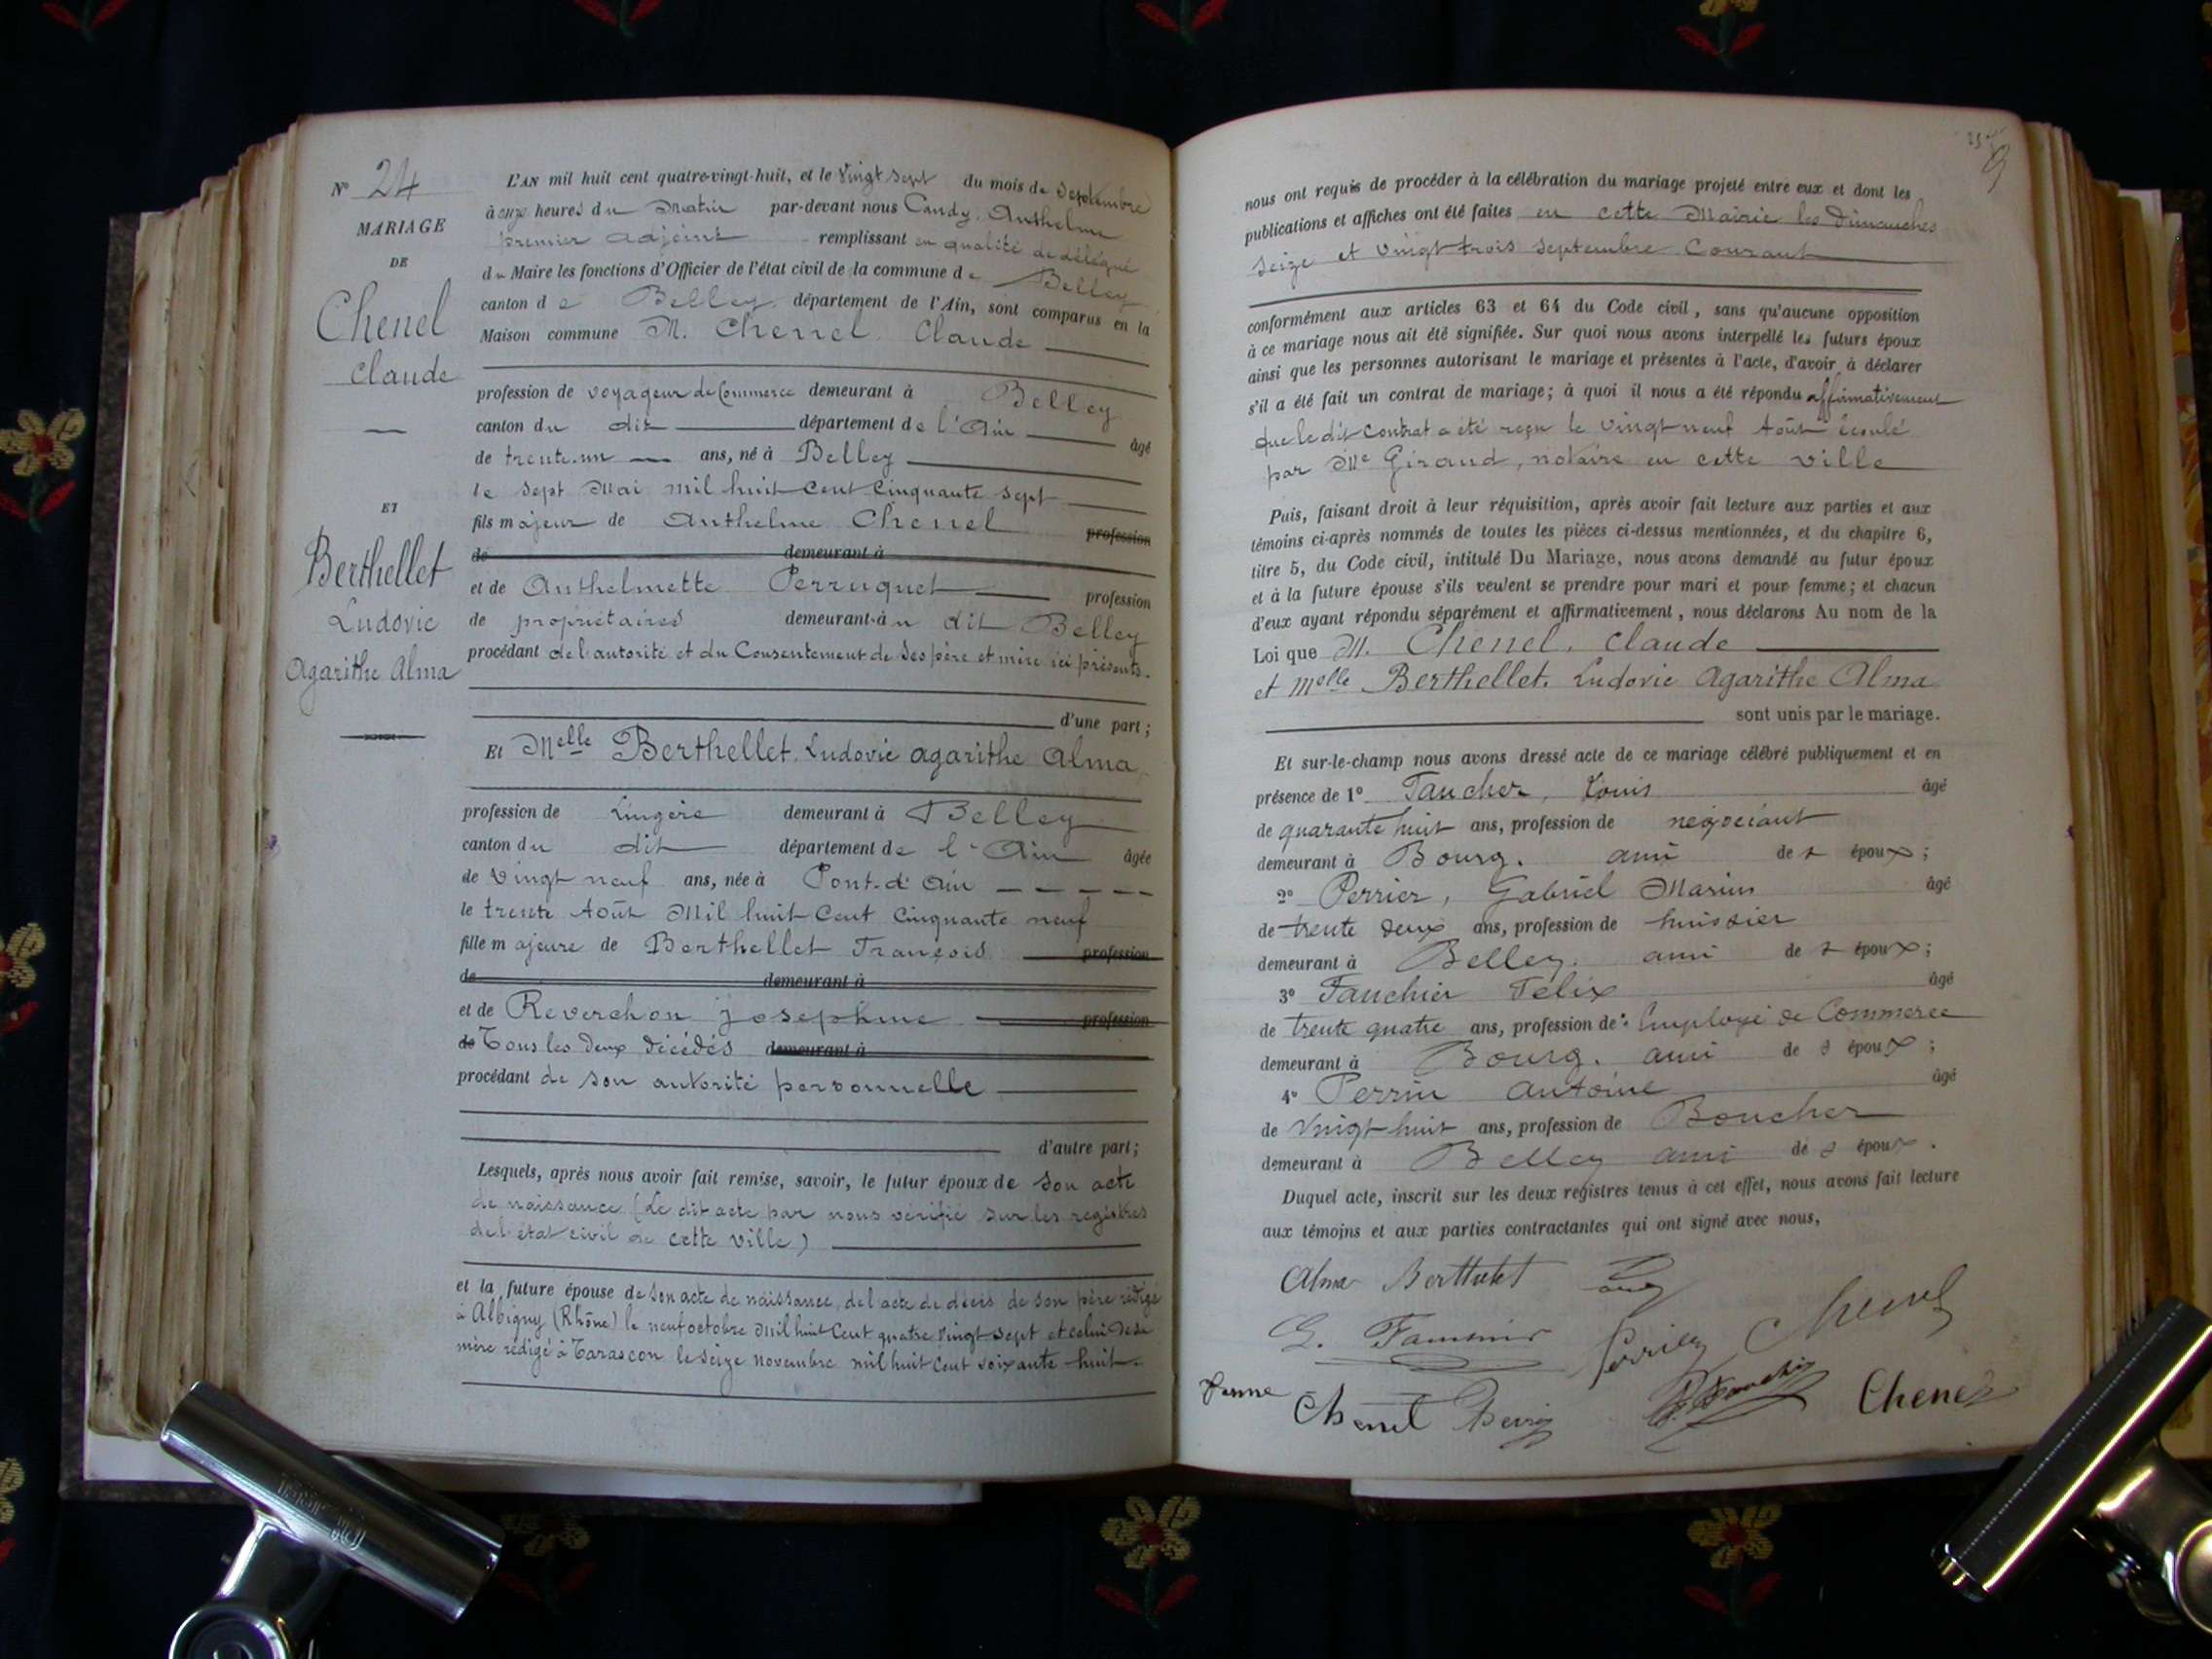 N° 24
MARIAGE
DE
Chenel
Claude
ET
Berthellet
Ludovic
Agarithe Alma
L'AN mil huit cent quatre-vingt-huit, et le vingt sept du mois de septembre
à onze heures du matin par-devant nous Candy, Anthelme
premier adjoint remplissant en qualité de délégué
du Maire les fonctions d'Officier de l'état civil de la commune de Belley
canton de Belley, département de l'Ain, sont comparus en la
Maison commune M. Chenel, Claude
profession de voyageur de Commerce demeurant à Belley
canton du dit département de l'Ain âgé
de trente-un ans, né à Belley
le sept Mai mil huit cent cinquante sept
fils majeur de Anthelme Chenel profession
de demeurant à
et de Anthelmette Perruquet profession
de propriétaires demeurant-à u dit Belley
procédant de l'autorité et du Consentement de ses père et mère ici présents.
d'une part;
Et Melle Berthellet, Ludovic agarithe Alma,
profession de Lingère demeurant à Belley
canton du dit département de l'Ain âgée
de vingt neuf ans, née à Pont-d'Ain
le trente Août Mil huit Cent Cinquante neuf
fille majeure de Berthellet François profession
de demeurant à
et de Reverchon josephine profession
de Tous les deux décédés demeurant à
procédant de son autorité personnelle
d'autre part;
Lesquels, après nous avoir fait remise, savoir, le futur époux de son acte
de naissance (Le dit acte par nous vérifié sur les registres
de l'état civil de cette ville)
et la future épouse de son acte de naissance, de l'acte de décès de son père rédigé
à Albigny (Rhône) le neuf octobre Mil huit Cent quatre vingt sept et celui de sa
mère rédigé à Tarascon le seize novembre mil huit cent soixante huit.
9
nous ont requis de procéder à la célébration du mariage projeté entre eux et dont les
publications et affiches ont été faites en cette Mairie les dimanches
seize et vingt trois septembre Courant
conformément aux articles 63 et 64 du Code civil, sans qu'aucune opposition
à ce mariage nous ait été signifiée. Sur quoi nous avons interpellé les futurs époux
ainsi que les personnes autorisant le mariage et présentes à l'acte, d'avoir à déclarer
s'il a été fait un contrat de mariage; à quoi il nous a été répondu affirmativement
que le dit contrat a été reçu le vingt neuf Août écoulé
par Me Giraud, notaire en cette ville
Puis, faisant droit à leur réquisition, après avoir fait lecture aux parties et aux
témoins ci-après nommés de toutes les pièces ci-dessus mentionnées, et du chapitre 6,
titre 5, du Code civil, intitulé Du Mariage, nous avons demandé au futur époux
et à la future épouse s'ils veulent se prendre pour mari et pour femme; et chacun
d'eux ayant répondu séparément et affirmativement, nous déclarons Au nom de la
Loi que M. Chenel, Claude
et Melle Berthellet, Ludovic Agarithe Alma
sont unis par le mariage.
Et sur-le-champ nous avons dressé acte de ce mariage célébré publiquement et en
présence de 1° Faucher, Louis âgé
de quarante huit ans, profession de négociant
demeurant à Bourg, ami des époux;
2° Perrier, Gabriel Marius âgé
de trente deux ans, profession de huissier
demeurant à Belley, ami des époux;
3° Fauchier Félix âgé
de trente quatre ans, profession de Employé de Commerce
demeurant à Bourg, ami des époux;
4° Perrin antoine âgé
de vingt huit ans, profession de Boucher
demeurant à Belley ami des époux.
Duquel acte, inscrit sur les deux registres tenus à cet effet, nous avons fait lecture
aux témoins et aux parties contractantes qui ont signé avec nous,
Alma Berthelet
Perrier Chenel
femme Chenel Perrin Chenel